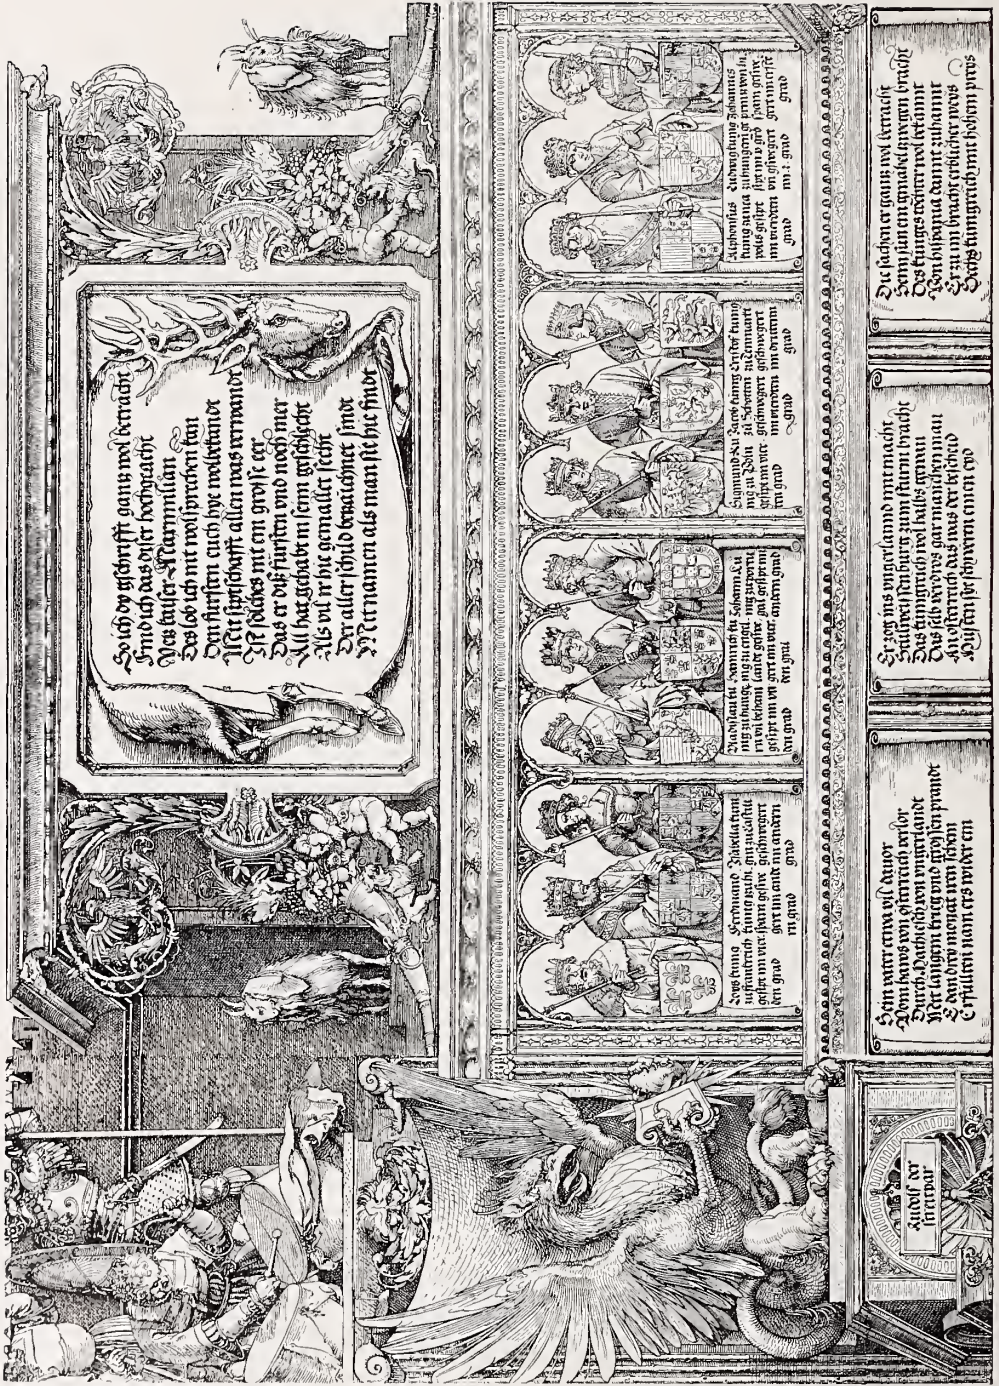 So ich dy gschrifft gantz wol betracht
Find ich das diser hochgeacht
kaiser Maximilian
Des lob ich nit wolsprechen kan
Den fursten euch hye wolbekandt
Mit siptschafft allen was verwandt
Ist solches nit ein grosse eer
Das er diß fursten vnd noch mer
All hat gehabt in seim geschlecht
Als vil ir hie gemallet secht
Der aller schild bezaichnet sindt
Mit namen als man sie hie findt
Loys kunig
zu franckreich
gesipt im vier
den grad
Ferdinand
kunig
grad
Isabella kuni
gin zu Castill
geschwegert
im andern
grad
Ladislau ku
nig zu hung
vnd beham
gesipt im
den grad
Hainrich ku
nig zu engel
landt
gert im vier
den grad
Johann
nig zu portu
gal gesipt im
andern grad
Sigmund ku
nig zu Poln
gesipt im vier
ten grad
Jacob kunig
zu Schotten
geschwegert
im vierden
grad
Cristof kunig
zu Denmarck
geschwegert
im dritten
grad
Alphonsus
kunig zu nea
polis gesipt
im vierden
grad
Ludwig kunig
zu hungern
sipt im
vn gschwegert
im 2 grad
Johannes
printz
gert im ersten
grad
Rudolf der
streitpar
Sein vater etwa vil dauor
Vom haws von osterreich verlor
Durch Mathiesch von vngerlandt
Mit langem krieg vnd grossen prandt
So dan drey monat vren schon
Erfulten nam ers wider ein
Er zog ins vngerland mit macht
Stulweissenburg zum sturm bracht
Das kunigreich wol halbs gewan
Das selb verdros gar manichen man
An osterreich das was der beschaid
Musten sy schweren einen eyd
Die sachen er gantz wol betracht
Seim sun ein gmahel zwegen bracht
Des kunigs tochter wol bekannt
Von hispania
Er zu im bracht erblicher weys
Sechs kunigreich mit hohem preys